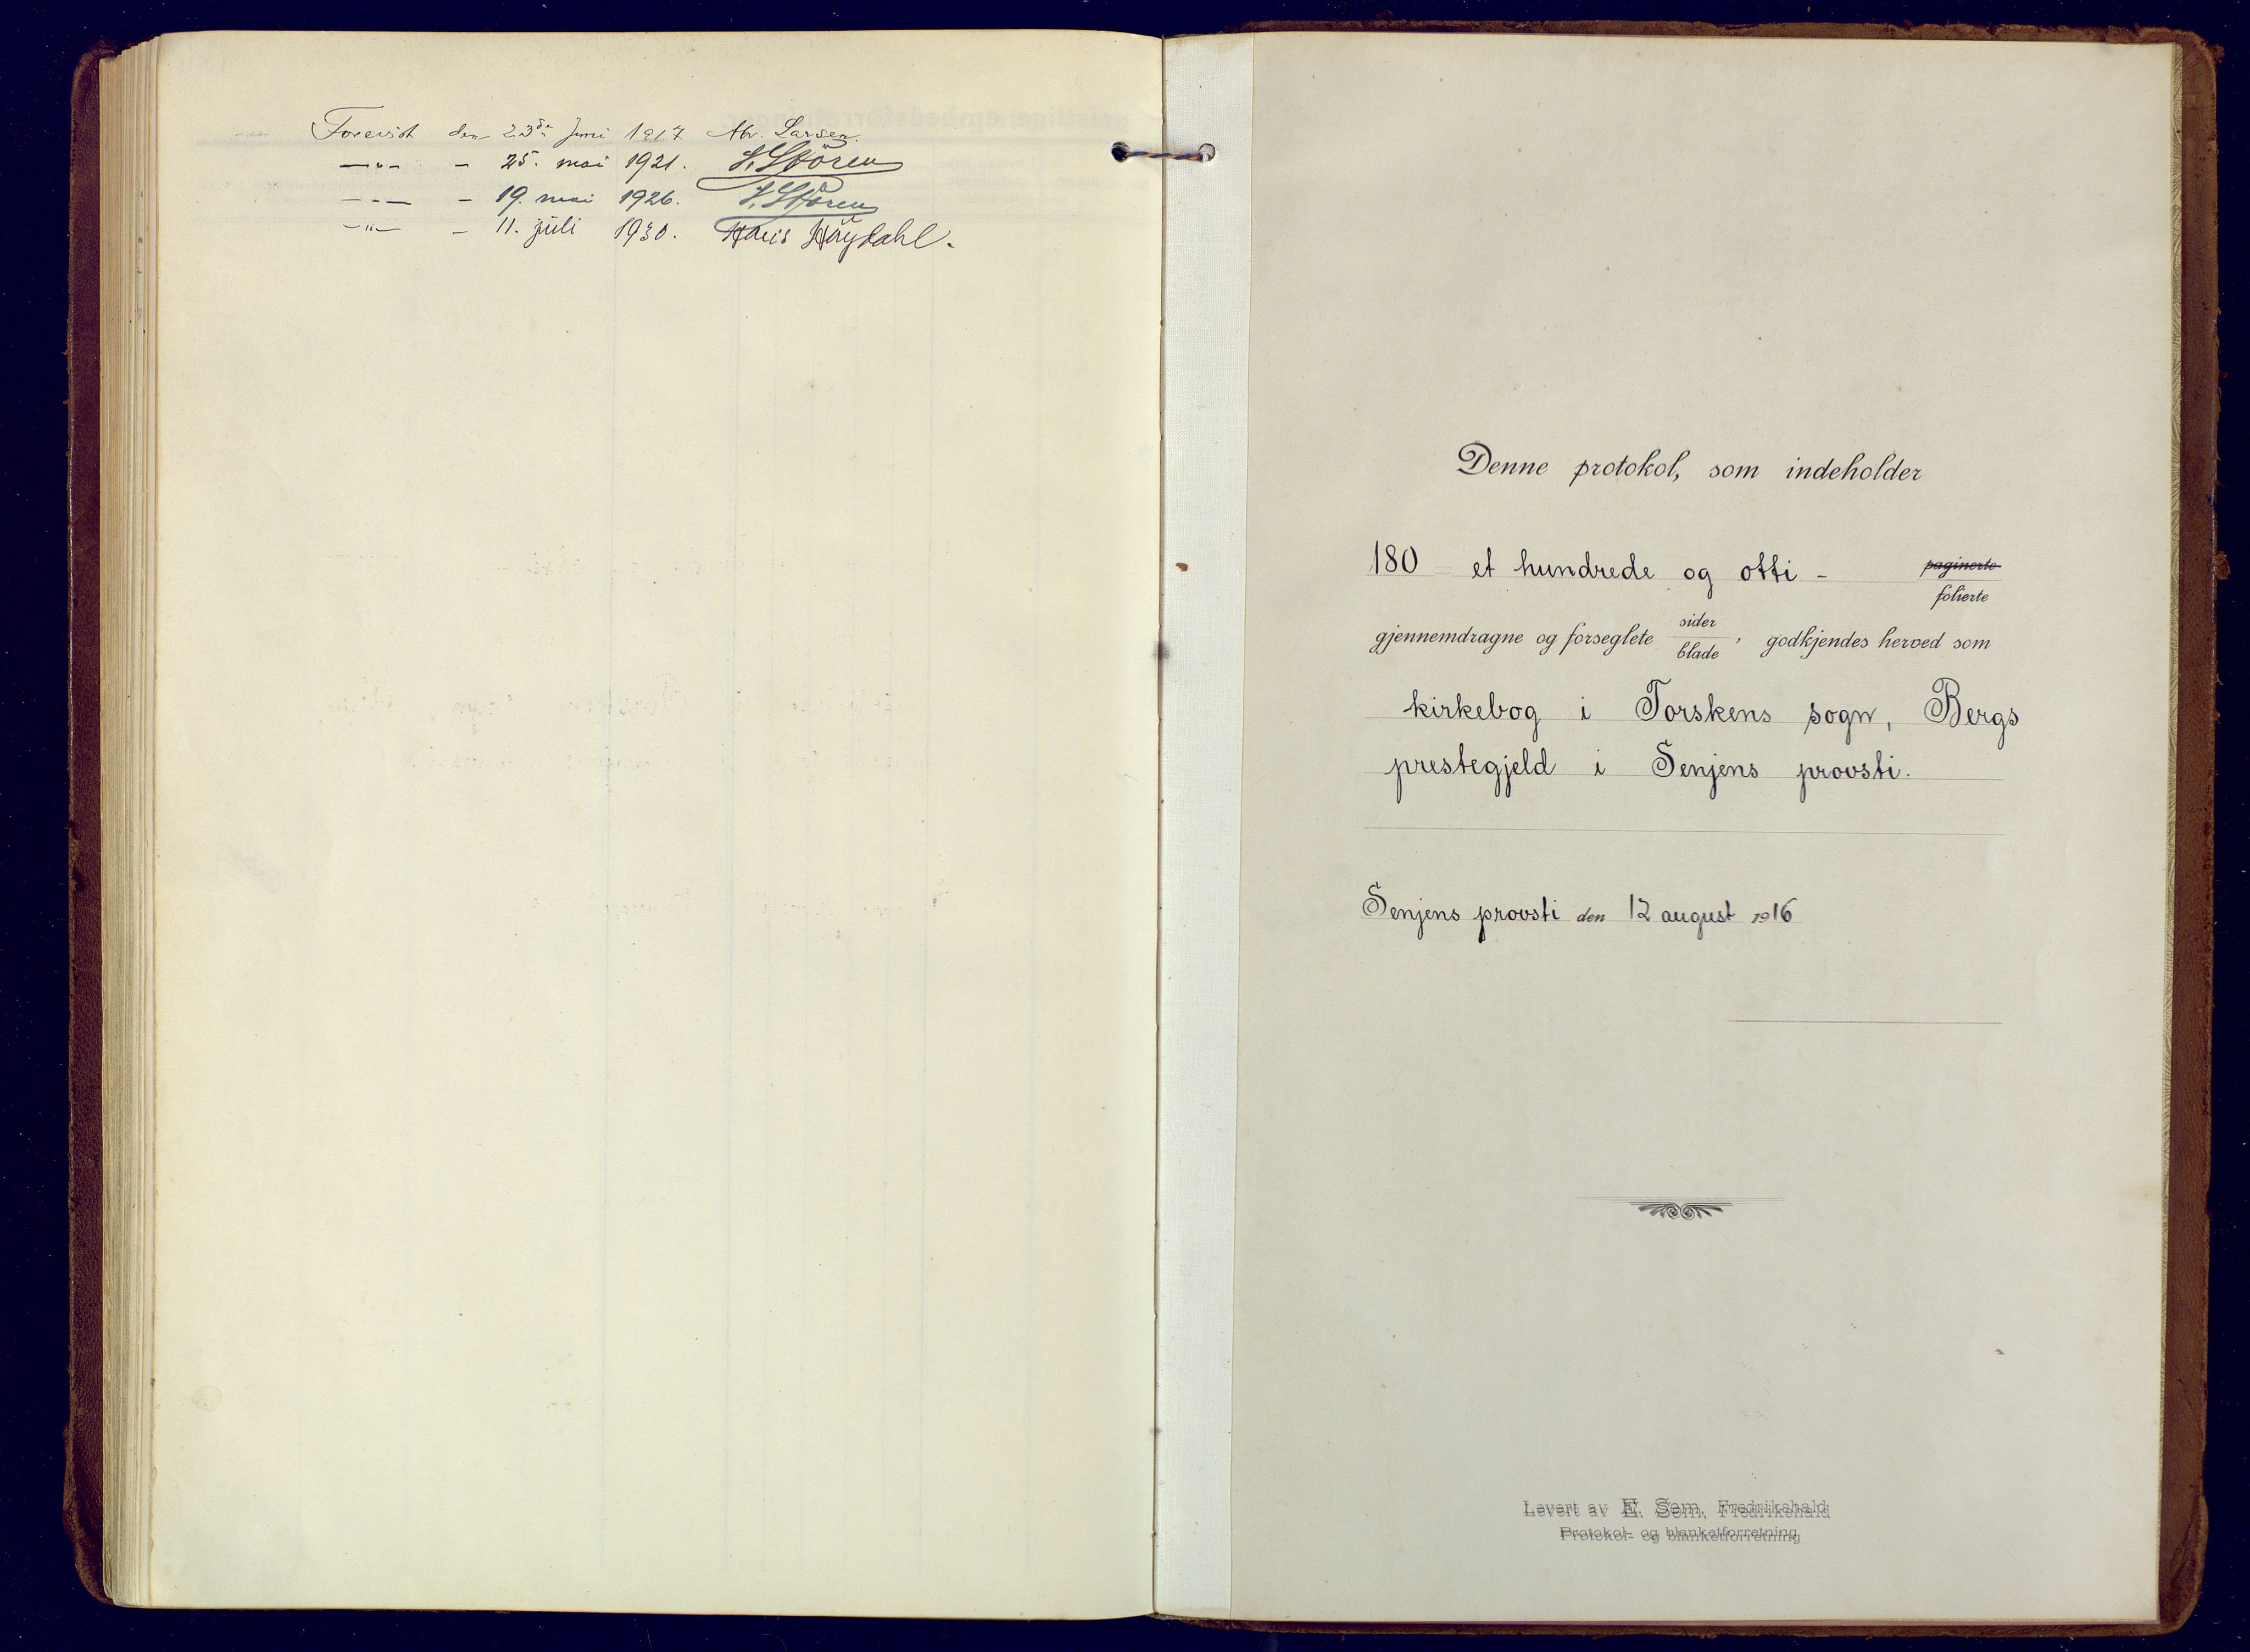 Forevist den 23de Juni 1917 Abr. Larsen.
—"— - 25. mai 1921. J. Støren
—"— - 19. mai 1926. J. Støren
—"— - 11. juli 1930. Hans Høydahl.
Denne protokol, som indeholder
180 et hundrede og otti - paginerte
folierte
gjennemdragne og forseglete sider blade, godkjendes herved som
kirkebog i Torskens sogn, Bergs
prestegjeld i Senjens provsti.
Senjens provsti den 12 august 1916
Levert av E. Sem, Fredrikshald
Protokol- og blanketforretning